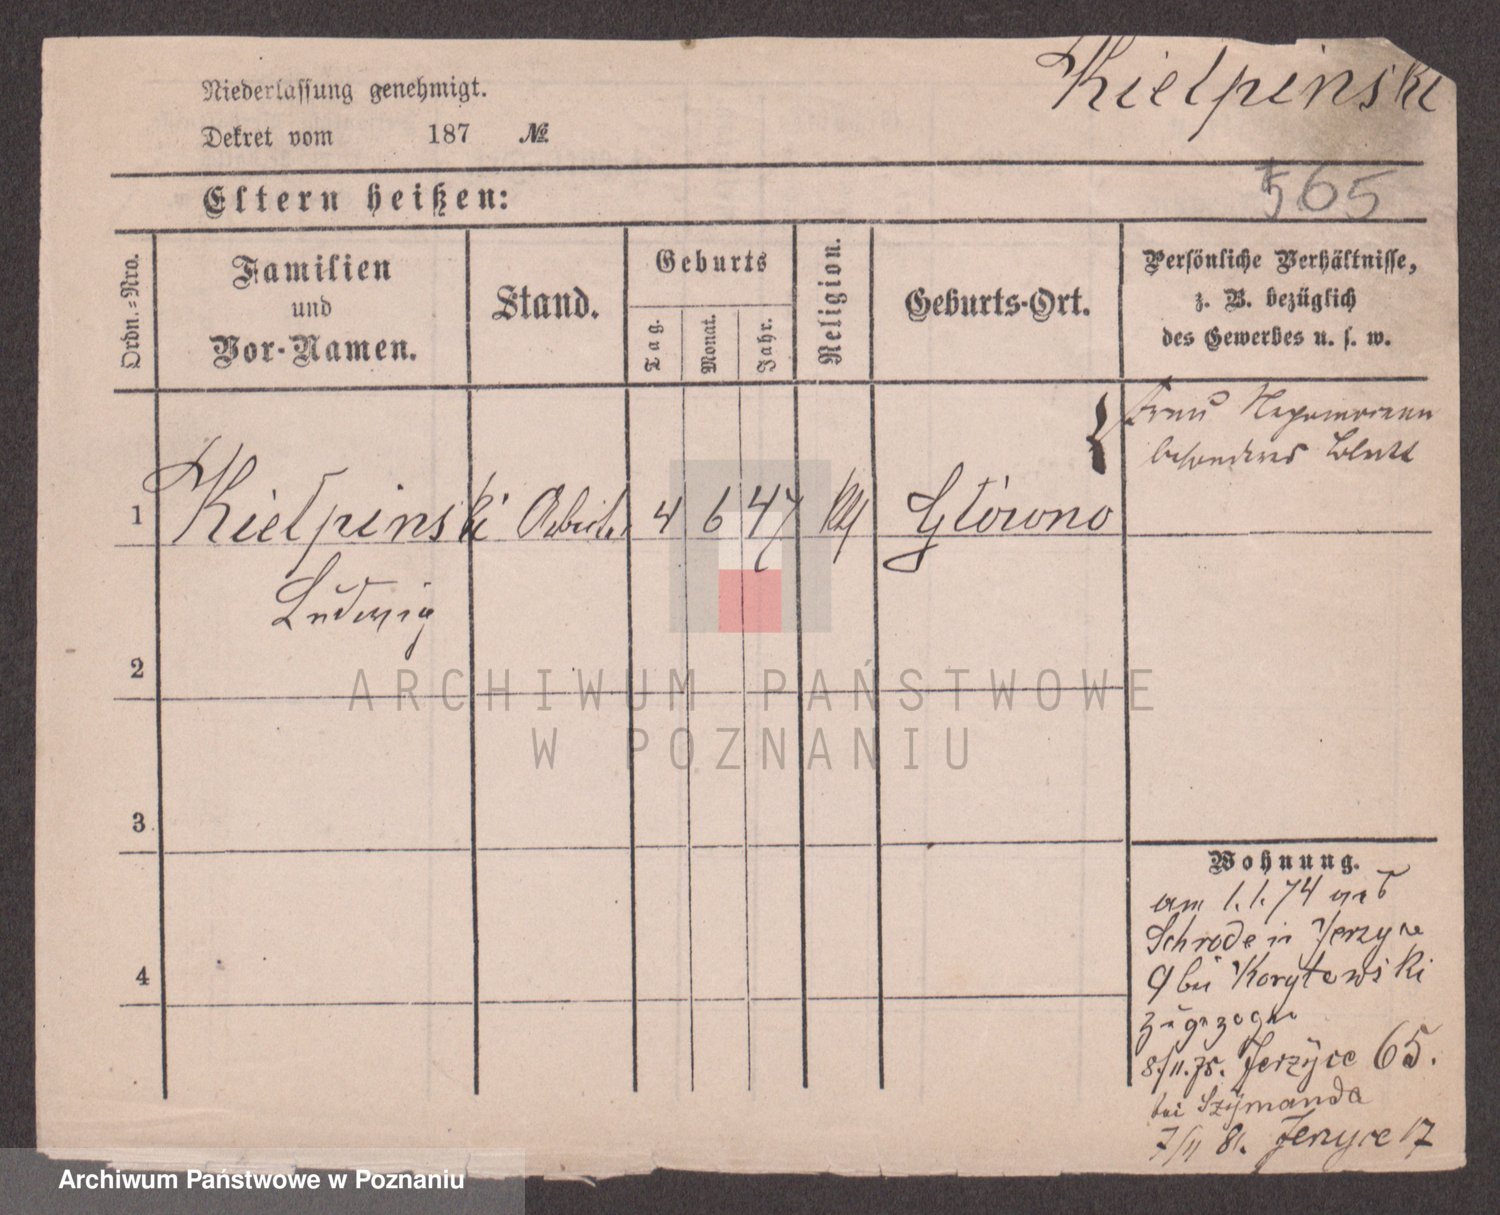 Kiełpinski
Niederlassung genehmigt.
Dekret vom 187 №
565
Eltern heißen:
Ordn.=Nro.
Familien
und
Vor-Namen.
Stand.
Geburts
Tag.
Monat.
Jahr.
Religion.
Geburts-Ort.
Persönliche Verhältnisse,
z. B. bezüglich
des Gewerbes u. s. w.
besonderes Blatt
1 Kiełpinski Arbeiter 4 6 47 kth Główno
Ludwig
2
3
4
Wohnung.
am 1.1.74 aus
Schroda in Jerzyce
9 bei Korytowski
zugezogen
8/11.75. Jerzÿce 65.
bei Szÿmanda
7/11 81. Jerzyce 17
ARCHIWUM PAŃSTWOWE
W POZNANIU
Archiwum Państwowe w Poznaniu